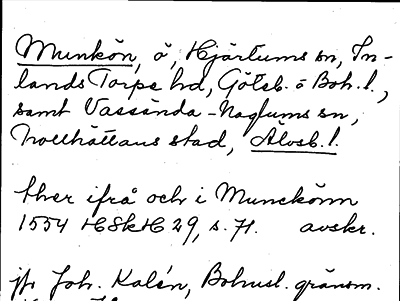 Munkön, ö, Hjärtums sn, In-
lands Torpe hd, Göteb. o Boh. l.,
samt Vassända-Naglums sn,
Trollhättans stad, Älvsb. l.
ther ifrå och i Munckönn
1554 HSkH 29, s. 71. avskr.
jfr Joh. Kalén, Bohusl. gränsm.